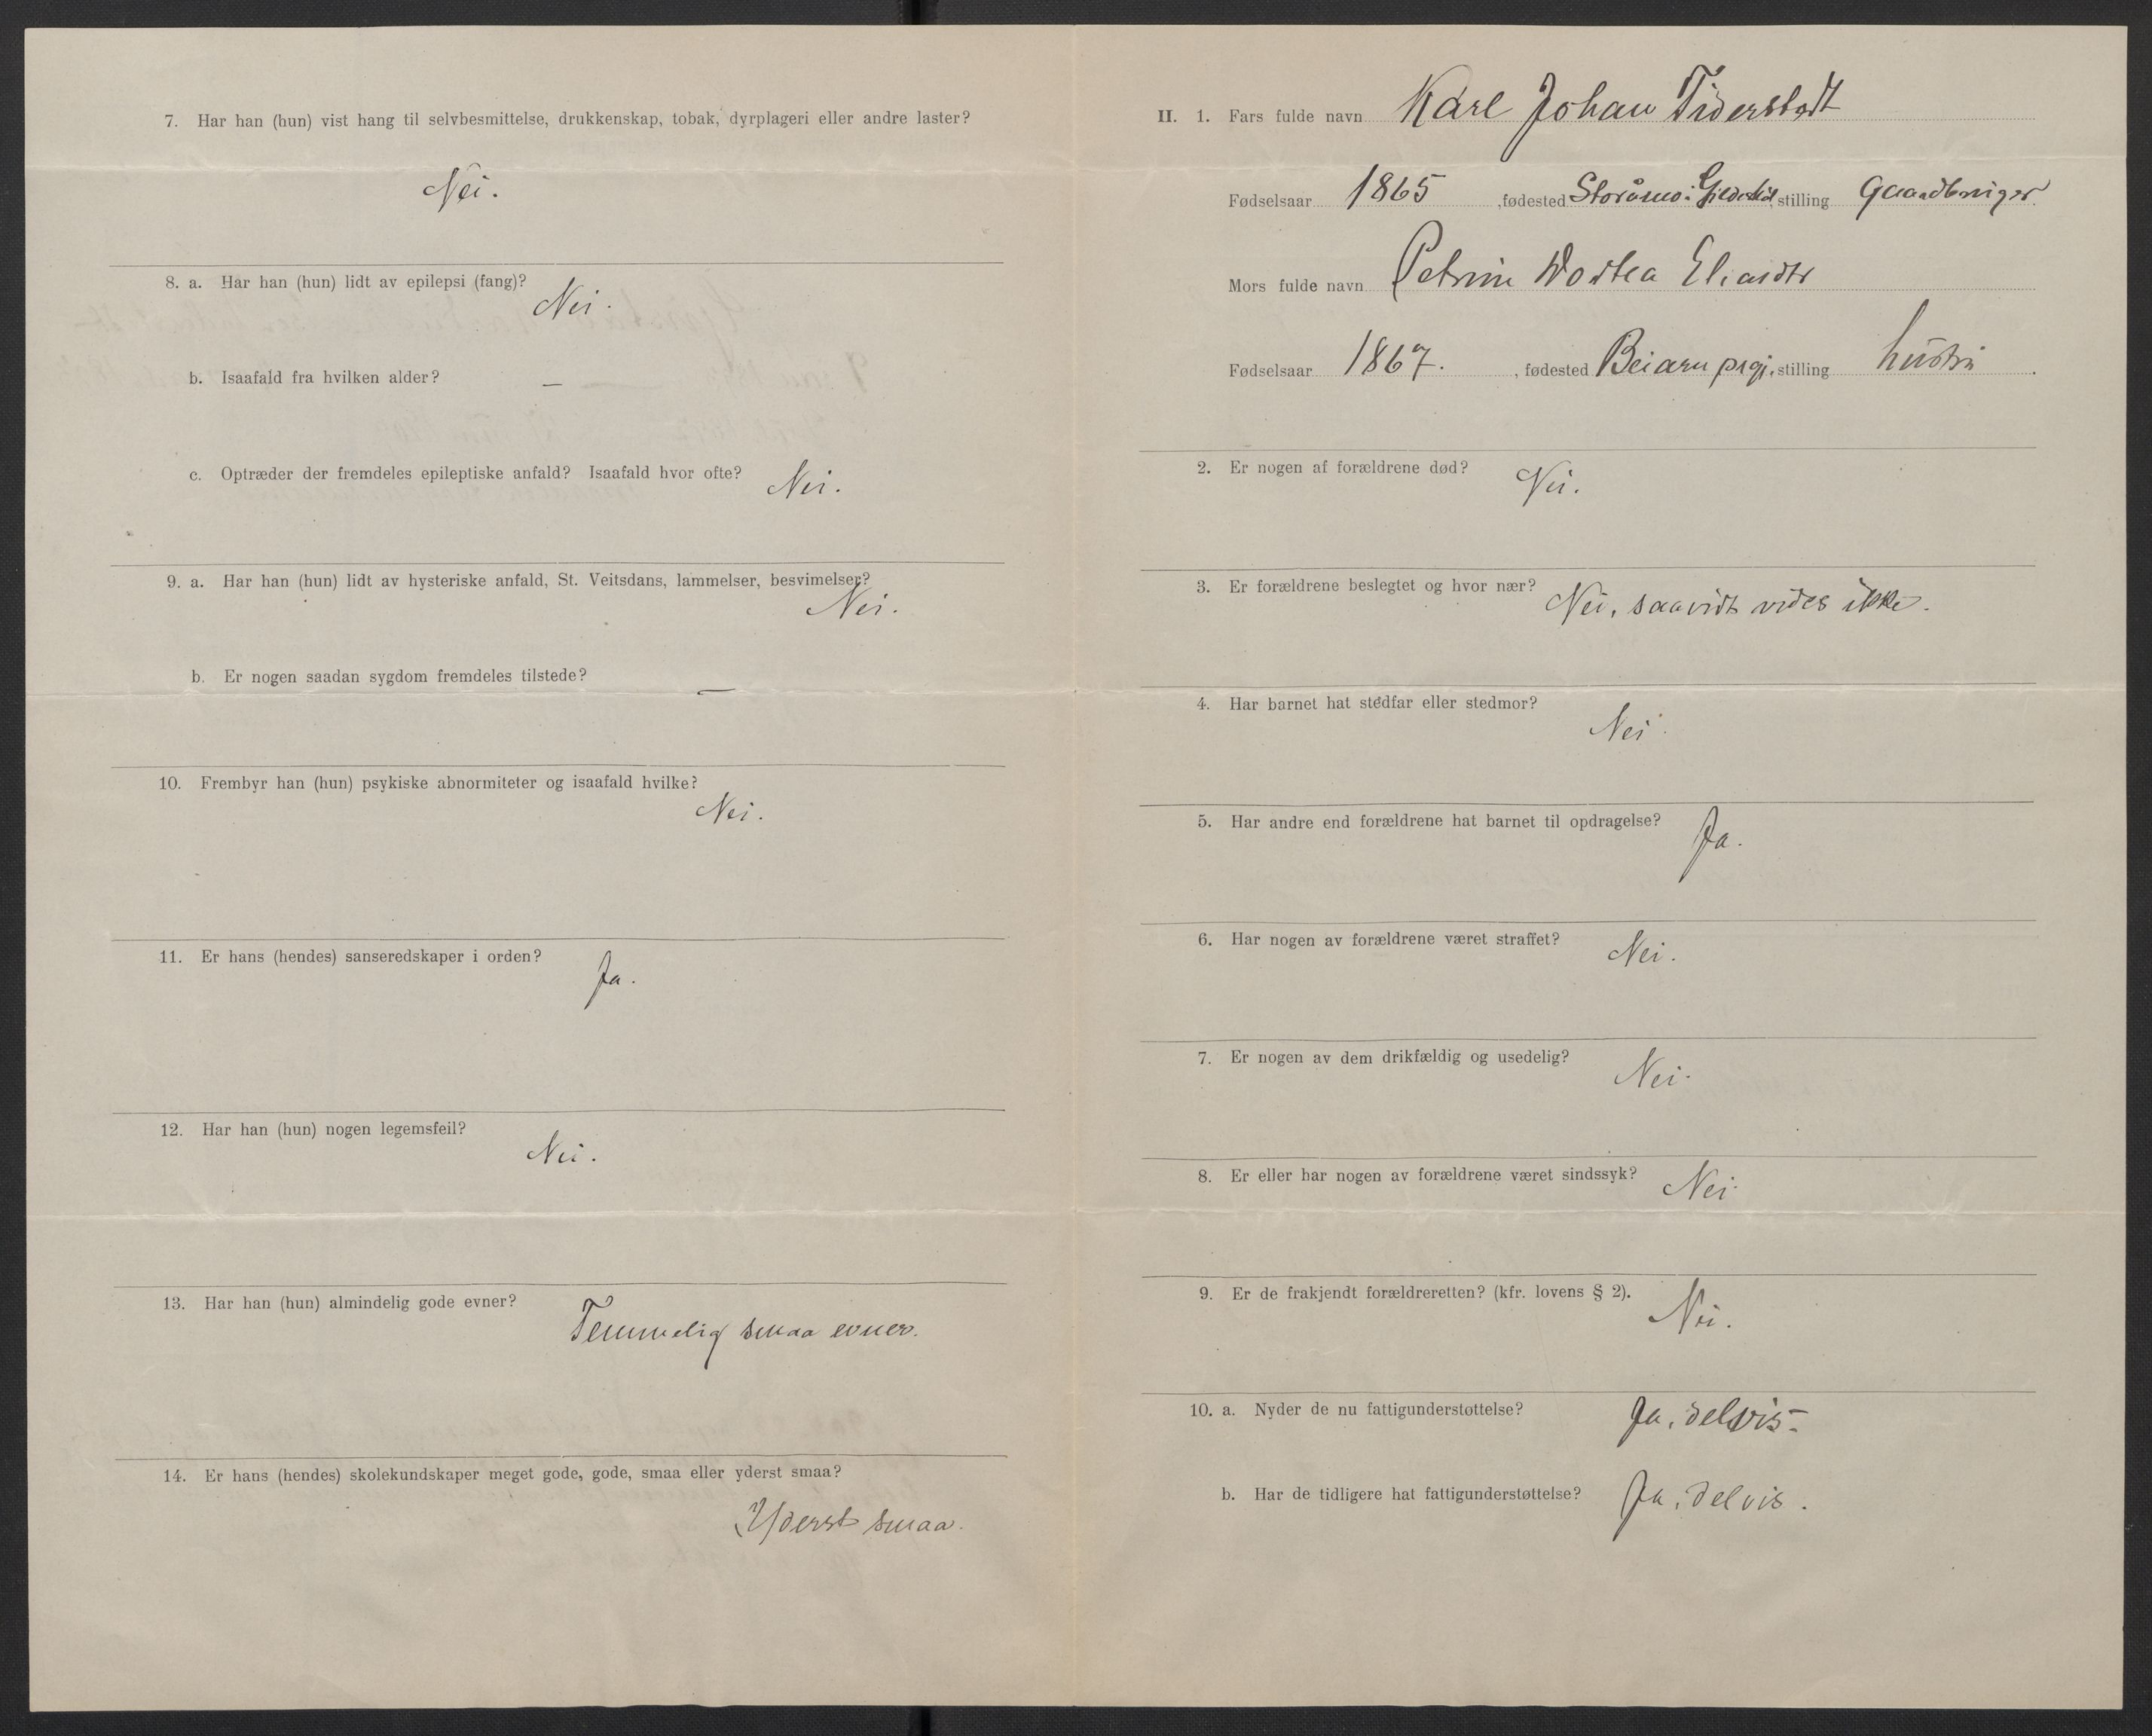 7. Har han (hun) vist hang til selvbesmittelse, drukkenskap, tobak, dyrplageri eller andre laster?
Nei.
8. a. Har han (hun) lidt av epilepsi (fang)?
Nei.
b. Isaafald fra hvilken alder? —
c. Optræder der fremdeles epileptiske anfald? Isaafald hvor ofte? Nei.
9. a. Har han (hun) lidt av hysteriske anfald, St. Veitsdans, lammelser, besvimelser?
Nei.
b. Er nogen saadan sygdom fremdeles tilstede? —
10. Frembyr han (hun) psykiske abnormiteter og isaafald hvilke?
Nei.
11. Er hans (hendes) sanseredskaper i orden? Ja.
12. Har han (hun) nogen legemsfeil?
Nei.
13. Har han (hun) almindelig gode evner?
Temmelig smaa evner.
14. Er hans (hendes) skolekundskaper meget gode, gode, smaa eller yderst smaa?
Yderst smaa.
II. 1. Fars fulde navn Karl Johan Tiderstedt
Fødselsaar 1865, fødested Storåmo i stilling Gaardbruger
Mors fulde navn Petrine Dortea Eliasdtr
Fødselsaar 1867., fødested Beiarn prgj. stilling hustru.
2. Er nogen af forældrene død? Nei.
3. Er forældrene beslegtet og hvor nær? Nei, saavidt vides ikke.
4. Har barnet hat stedfar eller stedmor?
Nei.
5. Har andre end forældrene hat barnet til opdragelse? Ja.
6. Har nogen av forældrene været straffet? Nei.
7. Er nogen av dem drikfældig og usedelig? Nei.
8. Er eller har nogen av forældrene været sindssyk? Nei.
9. Er de frakjendt forældreretten? (kfr. lovens § 2). Nei.
10. a. Nyder de nu fattigunderstøttelse? Ja, delvis.
b. Har de tidligere hat fattigunderstøttelse? Ja, delvis.